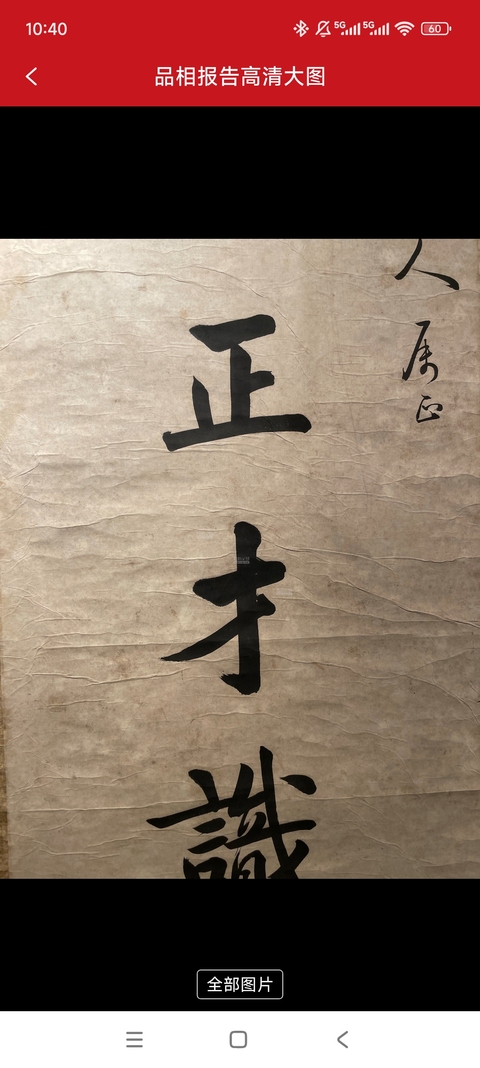 10:40
5G 5G 60
品相报告高清大图
人属正
正才識
全部图片